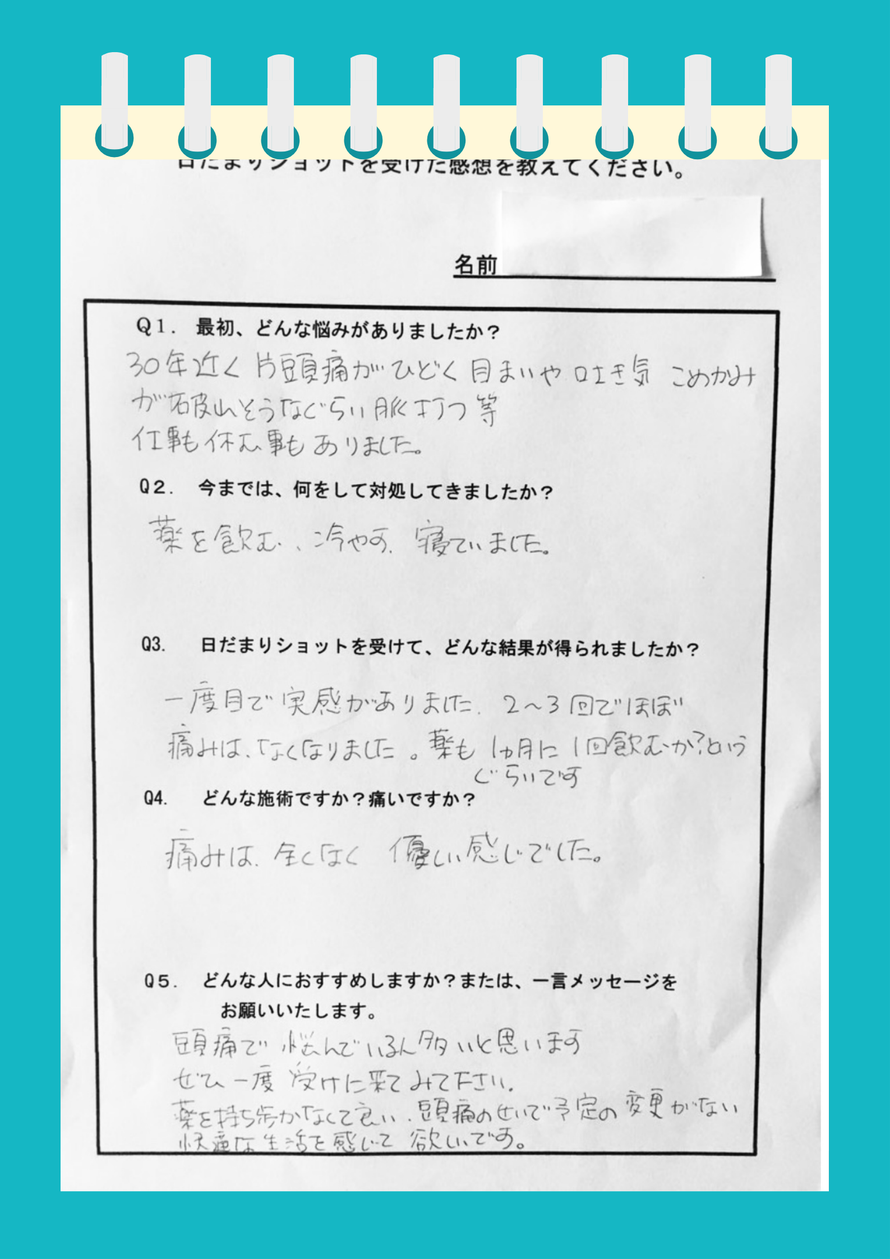 日だまりショットを受けた感想を教えてください。
名前
Q1. 最初、どんな悩みがありましたか？
30年近く片頭痛がひどく目まいや吐き気 こめかみ
が破れそうなぐらい脈打つ等
仕事も休む事もありました。
Q2. 今までは、何をして対処してきましたか？
薬を飲む、冷やす、寝ていました。
Q3. 日だまりショットを受けて、どんな結果が得られましたか？
一度目で実感がありました。2～3回でほぼ
痛みは、なくなりました。薬も1ヵ月に1回飲むか？という
ぐらいです
Q4. どんな施術ですか？痛いですか？
痛みは、全くなく 優しい感じでした。
Q5. どんな人におすすめしますか？または、一言メッセージを
お願いいたします。
頭痛で悩んでいる人多いと思います
ぜひ一度受けに来てみて下さい。
薬を持ち歩かなくて良い、頭痛のせいで予定の変更がない
快適な生活を感じて欲しいです。